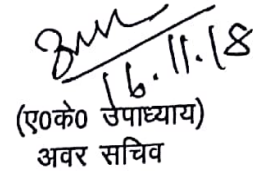 16.11.18
(ए०के० उपाध्याय)
अवर सचिव